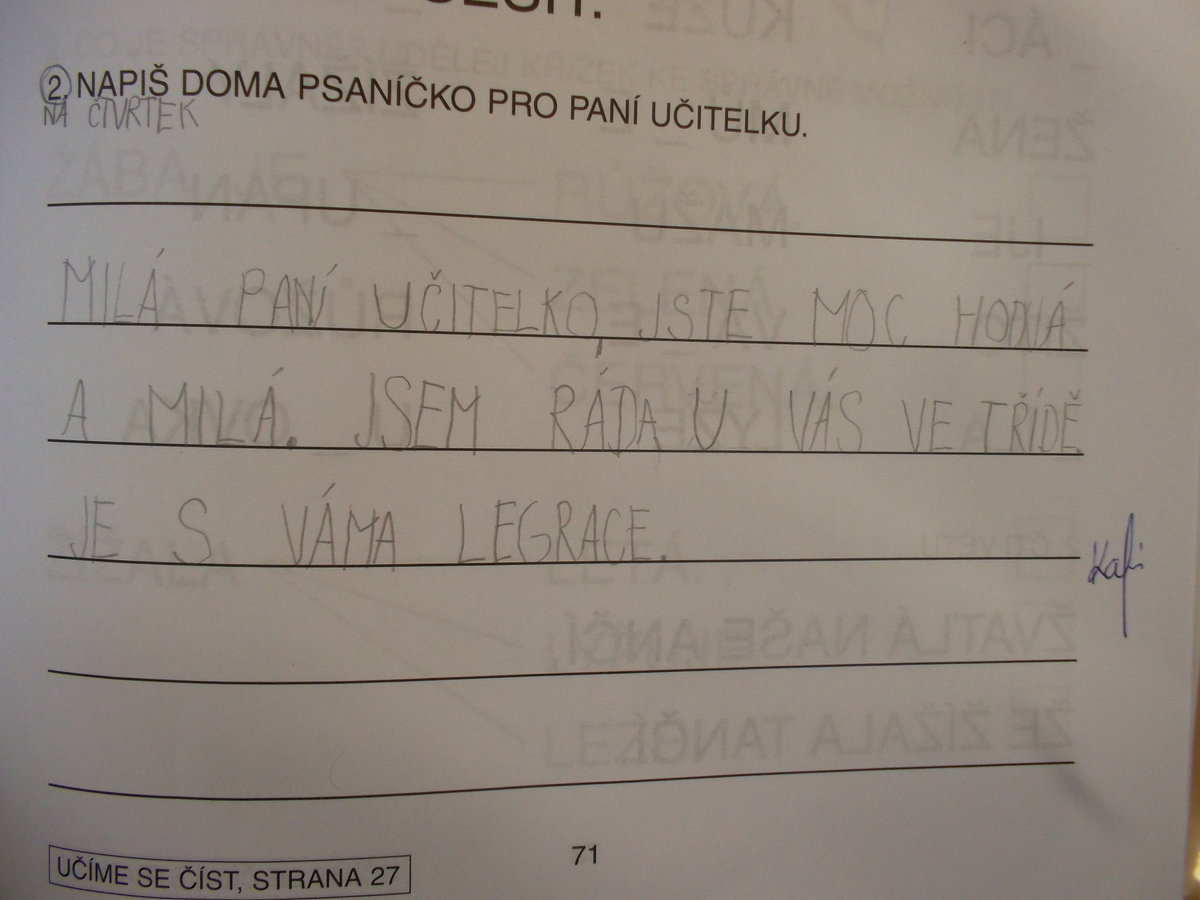 2. NAPIŠ DOMA PSANÍČKO PRO PANÍ UČITELKU.
NA ČTVRTEK
MILÁ PANÍ UČITELKO, JSTE MOC HODNÁ
A MILÁ. JSEM RÁDA U VÁS VE TŘÍDĚ.
JE S VÁMA LEGRACE.
71
UČÍME SE ČÍST, STRANA 27